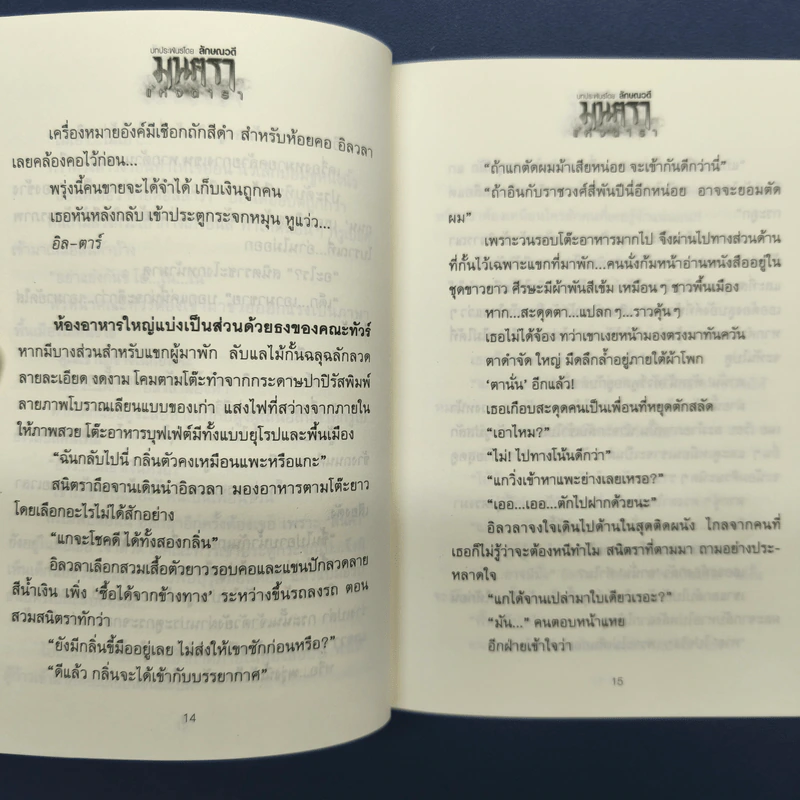 บทประพันธ์โดย ลักษณวดี
มนตรา
เครื่องหมายองค์มีเชือกถักสีดำ สำหรับห้อยคอ อิลวลา
เลยคล้องคอไว้ก่อน...
พรุ่งนี้คนขายจะได้จำได้ เก็บเงินถูกคน
เธอหันหลังกลับ เข้าประตูกระจกหมุน หูแว่ว...
อิล-ตาร์
ห้องอาหารใหญ่แบ่งเป็นส่วนด้วยธงของคณะทัวร์
หากมีบางส่วนสำหรับแขกผู้มาพัก ลับแลไม้กั้นฉลุฉลักลวด
ลายละเอียด งดงาม โคมตามโต๊ะทำจากกระดาษปาปิรัสพิมพ์
ลายภาพโบราณเลียนแบบของเก่า แสงไฟที่สว่างจากภายใน
ให้ภาพสวย โต๊ะอาหารบุฟเฟ่ต์มีทั้งแบบยุโรปและพื้นเมือง
“ฉันกลับไปนี่ กลิ่นตัวคงเหมือนแพะหรือแกะ”
สนิตราถือจานเดินนำอิลวลา มองอาหารตามโต๊ะยาว
โดยเลือกอะไรไม่ได้สักอย่าง
“แกจะโชคดี ได้ทั้งสองกลิ่น”
อิลวลาเลือกสวมเสื้อตัวยาว รอบคอและแขนปักลวดลาย
สีน้ำเงิน เพิ่ง ‘ซื้อได้จากข้างทาง’ ระหว่างขึ้นรถลงรถ ตอน
สวมสนิตราทักว่า
“ยังมีกลิ่นขี้มืออยู่เลย ไม่ส่งให้เขาซักก่อนหรือ?”
“ดีแล้ว กลิ่นจะได้เข้ากับบรรยากาศ”
14
บทประพันธ์โดย ลักษณวดี
มนตรา
“ถ้าแกตัดผมม้าเสียหน่อย จะเข้ากันดีกว่านี่”
“ถ้าอินกับราชวงศ์สี่พันปีนี่อีกหน่อย อาจจะยอมตัด
ผม”
เพราะวนรอบโต๊ะอาหารมากไป จึงผ่านไปทางส่วนด้าน
ที่กั้นไว้เฉพาะแขกที่มาพัก...คนนั่งก้มหน้าอ่านหนังสืออยู่ใน
ชุดขาวยาว ศีรษะมีผ้าพันสีเข้ม เหมือนๆ ชาวพื้นเมือง
หาก...สะดุดตา...แปลกๆ...ราวคุ้นๆ
เธอไม่ได้จ้อง ทว่าเขาเงยหน้ามองตรงมาทันควัน
ตาดำจัด ใหญ่ มืดลึกล้ำอยู่ภายใต้ผ้าโพก
‘ตานั่น’ อีกแล้ว!
เธอเกือบสะดุดคนเป็นเพื่อนที่หยุดตักสลัด
“เอาไหม?”
“ไม่! ไปทางโน้นดีกว่า”
“แกวิ่งเข้าหาแพะย่างเลยเหรอ?”
“เออ...เออ...ตักไปฝากด้วยนะ”
อิลวลาจงใจเดินไปด้านในสุดติดผนัง ไกลจากคนที่
เธอก็ไม่รู้ว่าจะต้องหนีทำไม สนิตราที่ตามมา ถามอย่างประ-
หลาดใจ
“แกได้จานเปล่ามาใบเดียวเรอะ?”
“มัน...” คนตอบหน้าแหย
อีกฝ่ายเข้าใจว่า
15